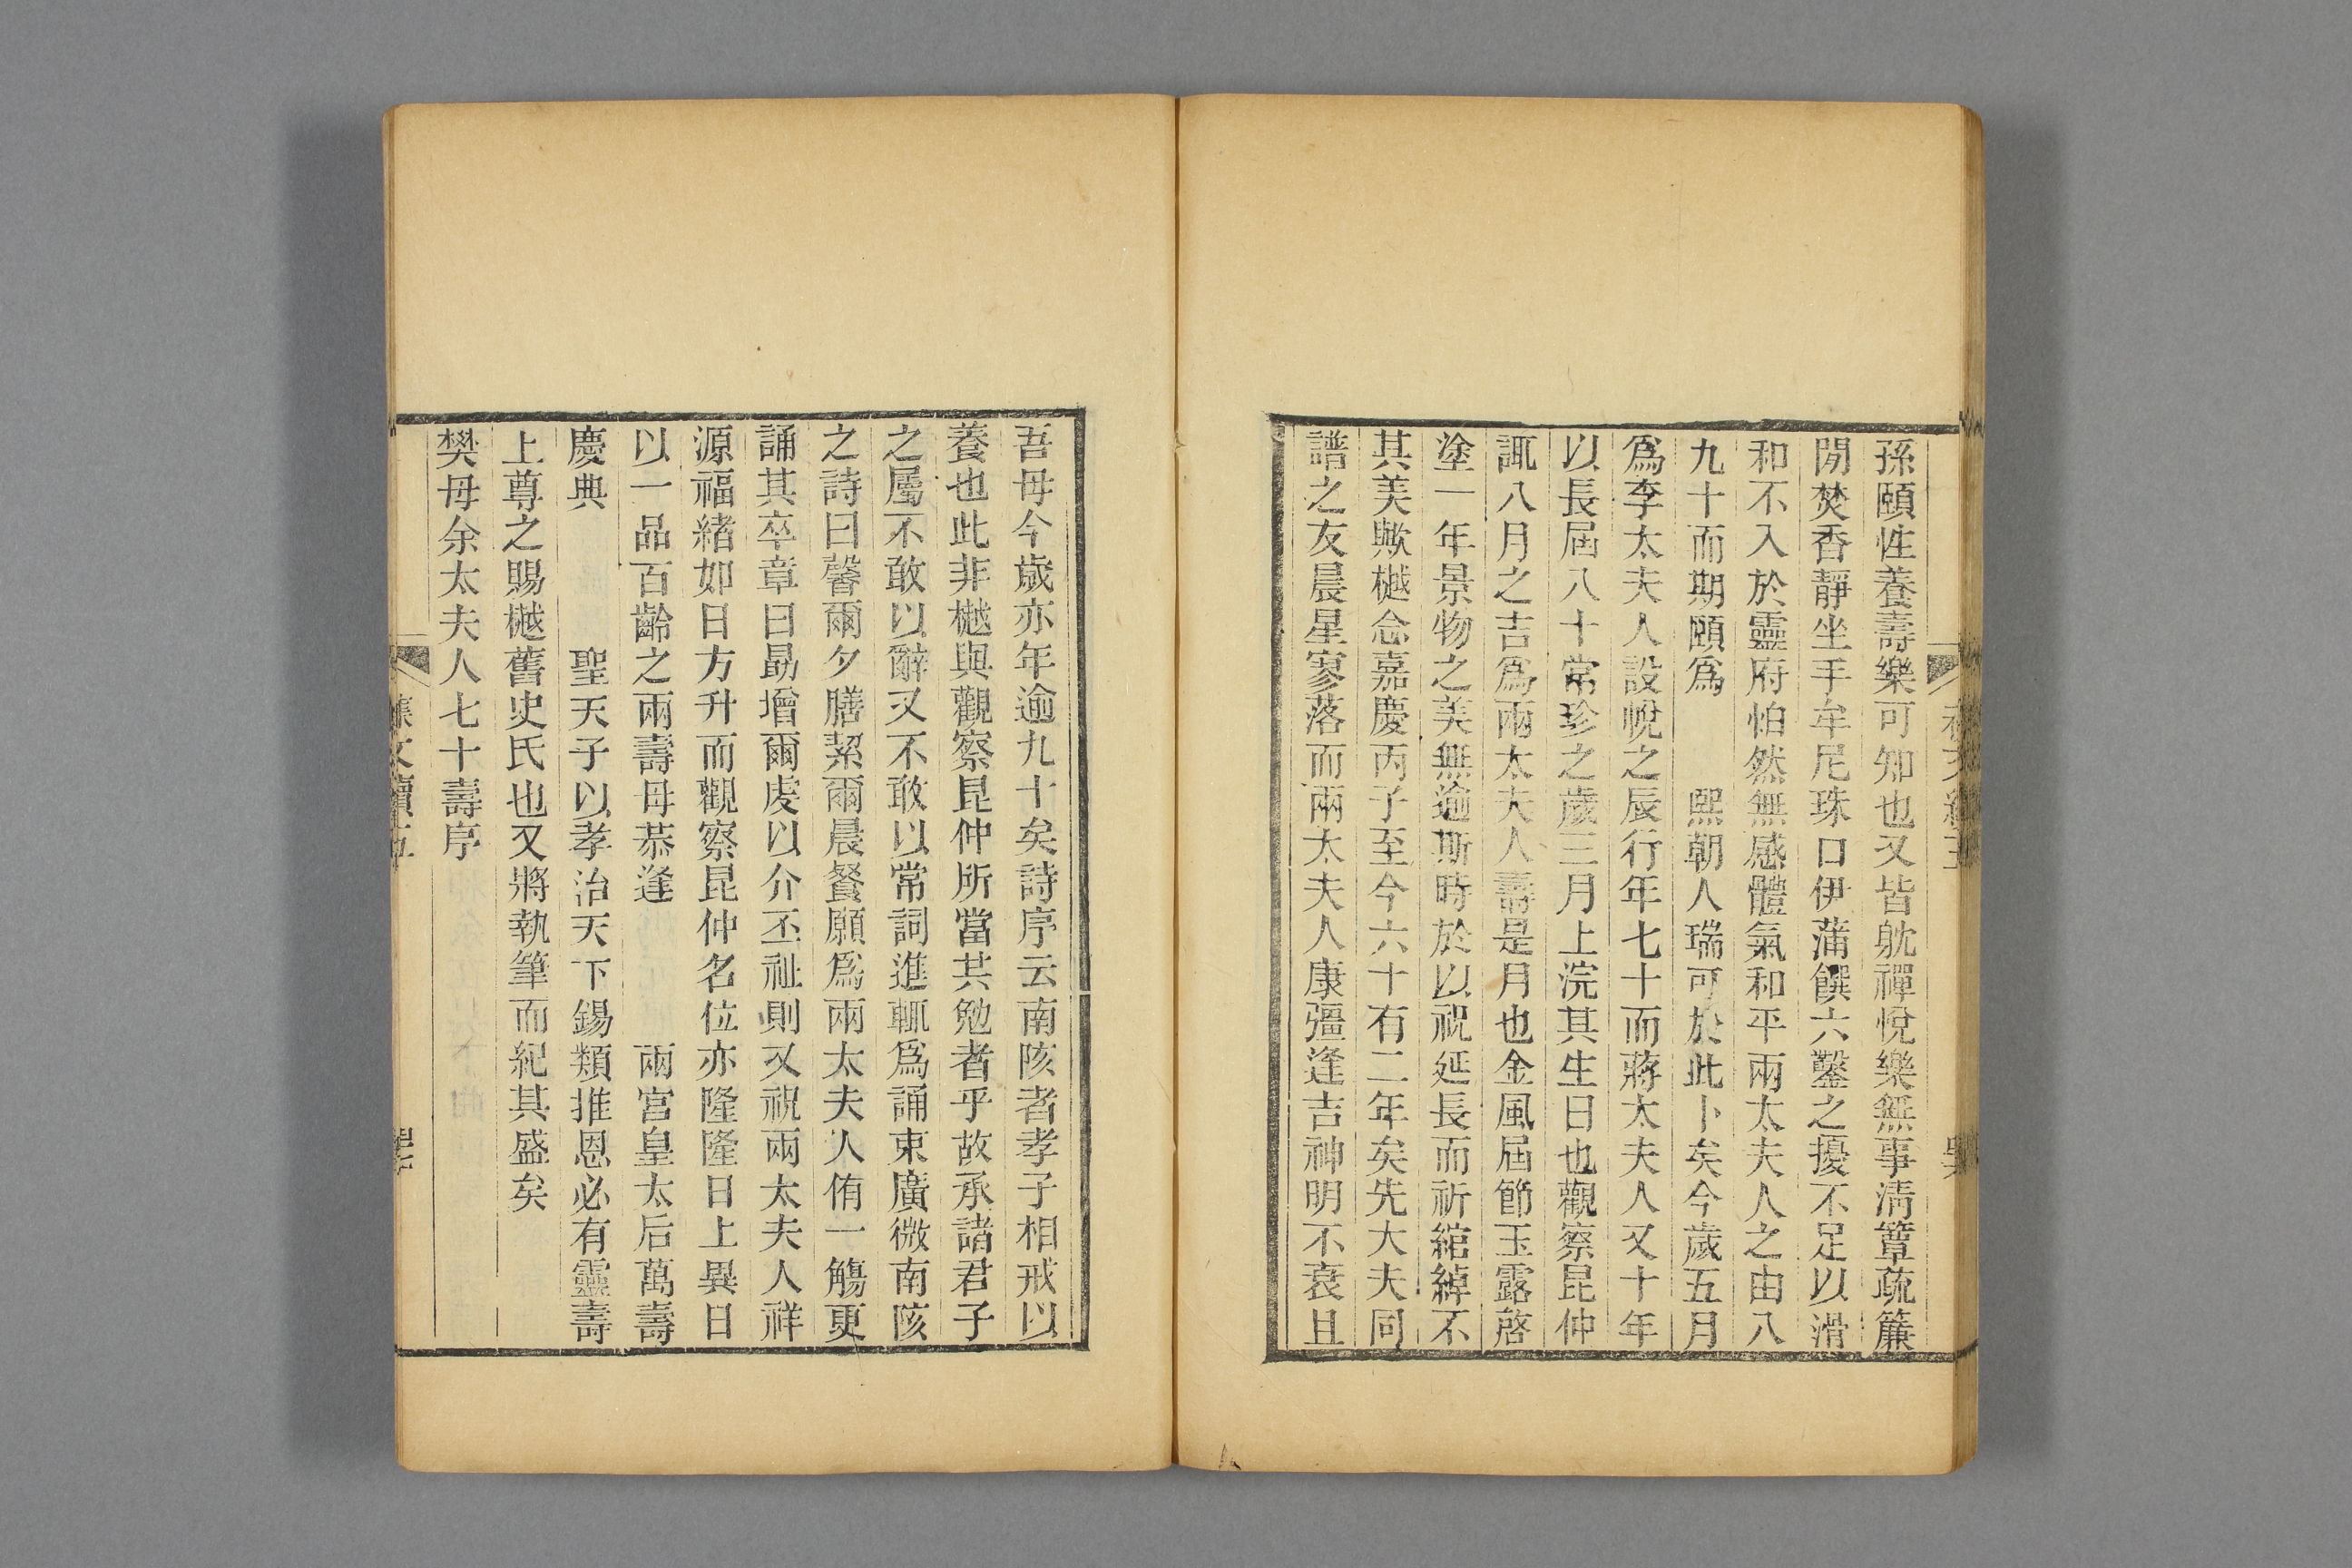 孫頤性養壽樂可知也又皆躭禪悅樂無事淸簟疏簾
閒焚香靜坐手牟尼珠口伊蒲饌六鑿之擾不足以滑
和不入於靈府怕然無感體氣和平兩太夫人之由八
九十而期頤爲　熙朝人瑞可於此卜矣今歲五月
爲李太夫人設帨之辰行年七十而蔣太夫人又十年
以長屆八十常珍之歲三月上浣其生日也觀察昆仲
諏八月之吉爲兩太夫人壽是月也金風屆節玉露啓
塗一年景物之美無逾斯時於以祝延長而祈綰綽不
其美歟樾念嘉慶丙子至今六十有二年矣先大夫同
譜之友晨星寥落而兩太夫人康彊逢吉神明不衰且
吾母今歲亦年逾九十矣詩序云南陔者孝子相戒以
養也此非樾與觀察昆仲所當共勉者乎故承諸君子
之屬不敢以辭又不敢以常詞進輒爲誦束廣微南陔
之詩曰馨爾夕膳絜爾晨餐願爲兩太夫人侑一觴更
誦其卒章曰勗增爾虔以介丕祉則又祝兩太夫人祥
源福緒如日方升而觀察昆仲名位亦隆隆日上異日
以一品百齡之兩壽母恭逢　兩宮皇太后萬壽
慶典　聖天子以孝治天下錫類推恩必有靈壽
上尊之賜樾舊史氏也又將執筆而紀其盛矣
樊母余太夫人七十壽序